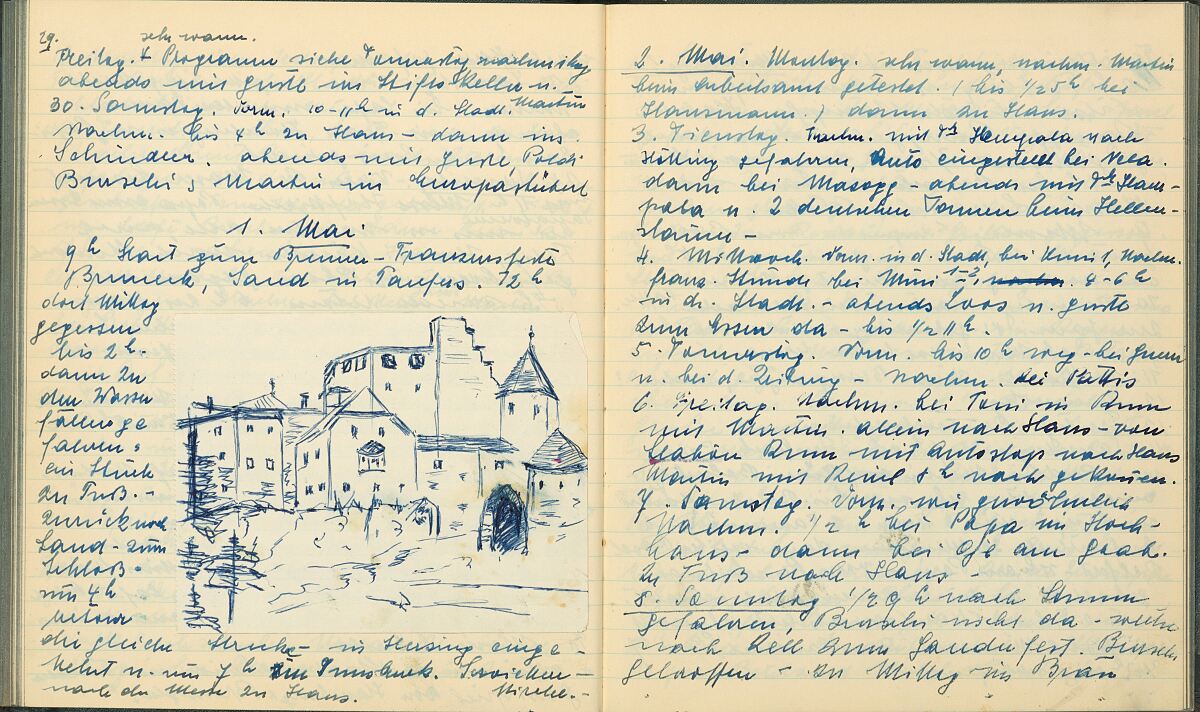 29. sehr warm.
Freitag. Programm siehe Donnerstag nachmittag
abends mit Guste im Stiftskeller u.
Martin
30. Samstag. Vorm. 10-11h in d. Stadt.
Nachm. bis 4h zu Haus - dann ins
Schindler. abends mit Guste, Poldi
Burschi, Martin im Europastüberl
1. Mai
9h Start zum Brenner - Franzensfeste
Bruneck, Sand in Taufers. 12h
dort Mittag
gegessen
bis 2h.
dann zu
den Wasser
fällen ge
fahren,
ein Stück
zu Fuß. -
zurück nach
Sand - zum
Schloß -
um 4h
retour
die gleiche Strecke - in Sterzing einge -
kehrt u. um 7h in Innsbruck.
nach der Messe zu Haus. Kirche. -
2. Mai. Montag. sehr warm, nachm. Martin
beim Arbeitsamt getestet. (bis 1/2 5h bei
Hausmann.) dann zu Haus.
3. Dienstag. Nachm. mit nach
Hötting gefahren, Auto eingestellt bei
dann bei - abends mit
u. 2 deutschen Damen beim
4. Mittwoch. Vorm. in d. Stadt, bei Nachm.
franz. Stunde bei 1-2, 4-6h
in d. Stadt. - abends Loos u. Guste
zum Essen da - bis 1/2 11h.
5. Donnerstag. Vorm. bis 10h weg - bei
u. bei d. Zeitung - Nachm. bei
6. Freitag. Nachm. bei Toni in
mit Martin. allein nach Haus - von
mit Autostop nach Haus
Martin mit 8h nach gekommen.
7. Samstag. Vorm. wie gewöhnlich
Nachm. 1/2 h bei Papa im Hoch-
haus - dann bei am
zu Fuß nach Haus -
8. Sonntag 1/2 9h nach
gefahren, Burschi nicht da - weiter
nach Zell zum Gauderfest. Burschi
getroffen - zu Mittag im Bräu